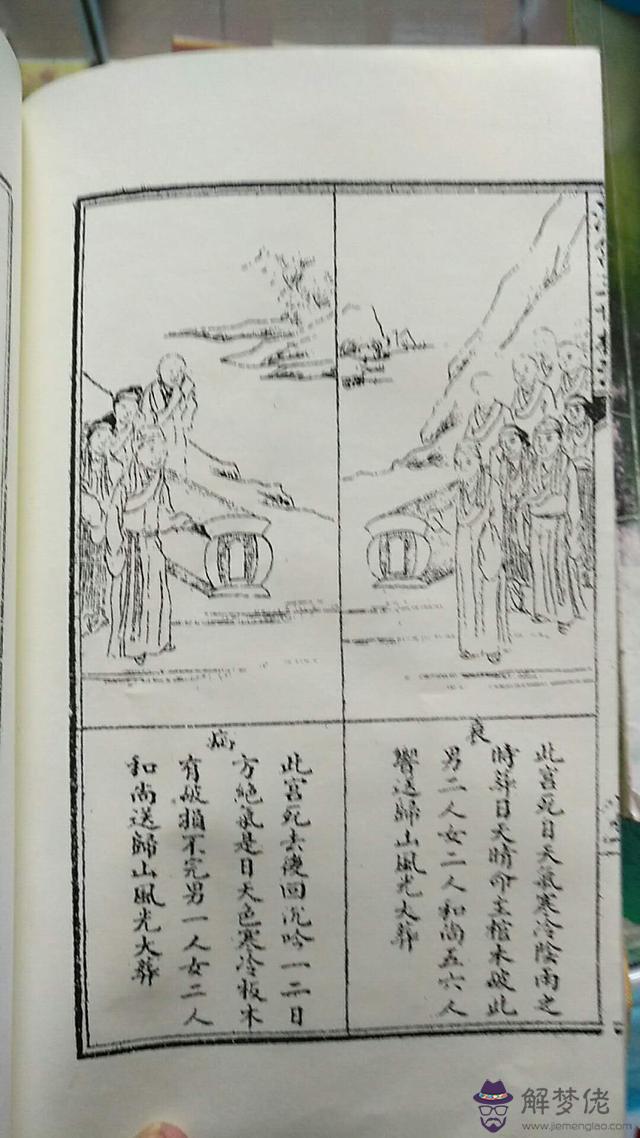 衰
此宮死日天氣寒冷陰雨之
時葬日天晴命主棺木破此
男二人女二人和尚五六人
響送歸山風光大葬
病
此宮死去復回沉吟一二日
方絕氣是日天色寒冷板木
有破損不完男一人女二人
和尚送歸山風光大葬
解梦佬
www.jiemenglao.com